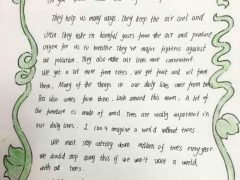 They help us many ways. They keep the air cool and
clean. They take in harmful gases from the air and produce
oxygen for us to breathe. They're major fighters against
air pollution. They also make our lives more convenient.
We get a lot more from trees. we get fruit and oil from
them. Many of the things in our daily lives come from trees
Tea also comes from them. Look around this room. A lot of
the furniture is made of wood. Trees are really important in
our daily lives. I can't imagine a world without trees.
We must stop cutting down millions of trees every year.
we should stop doing this if we won't want a world
with out trees